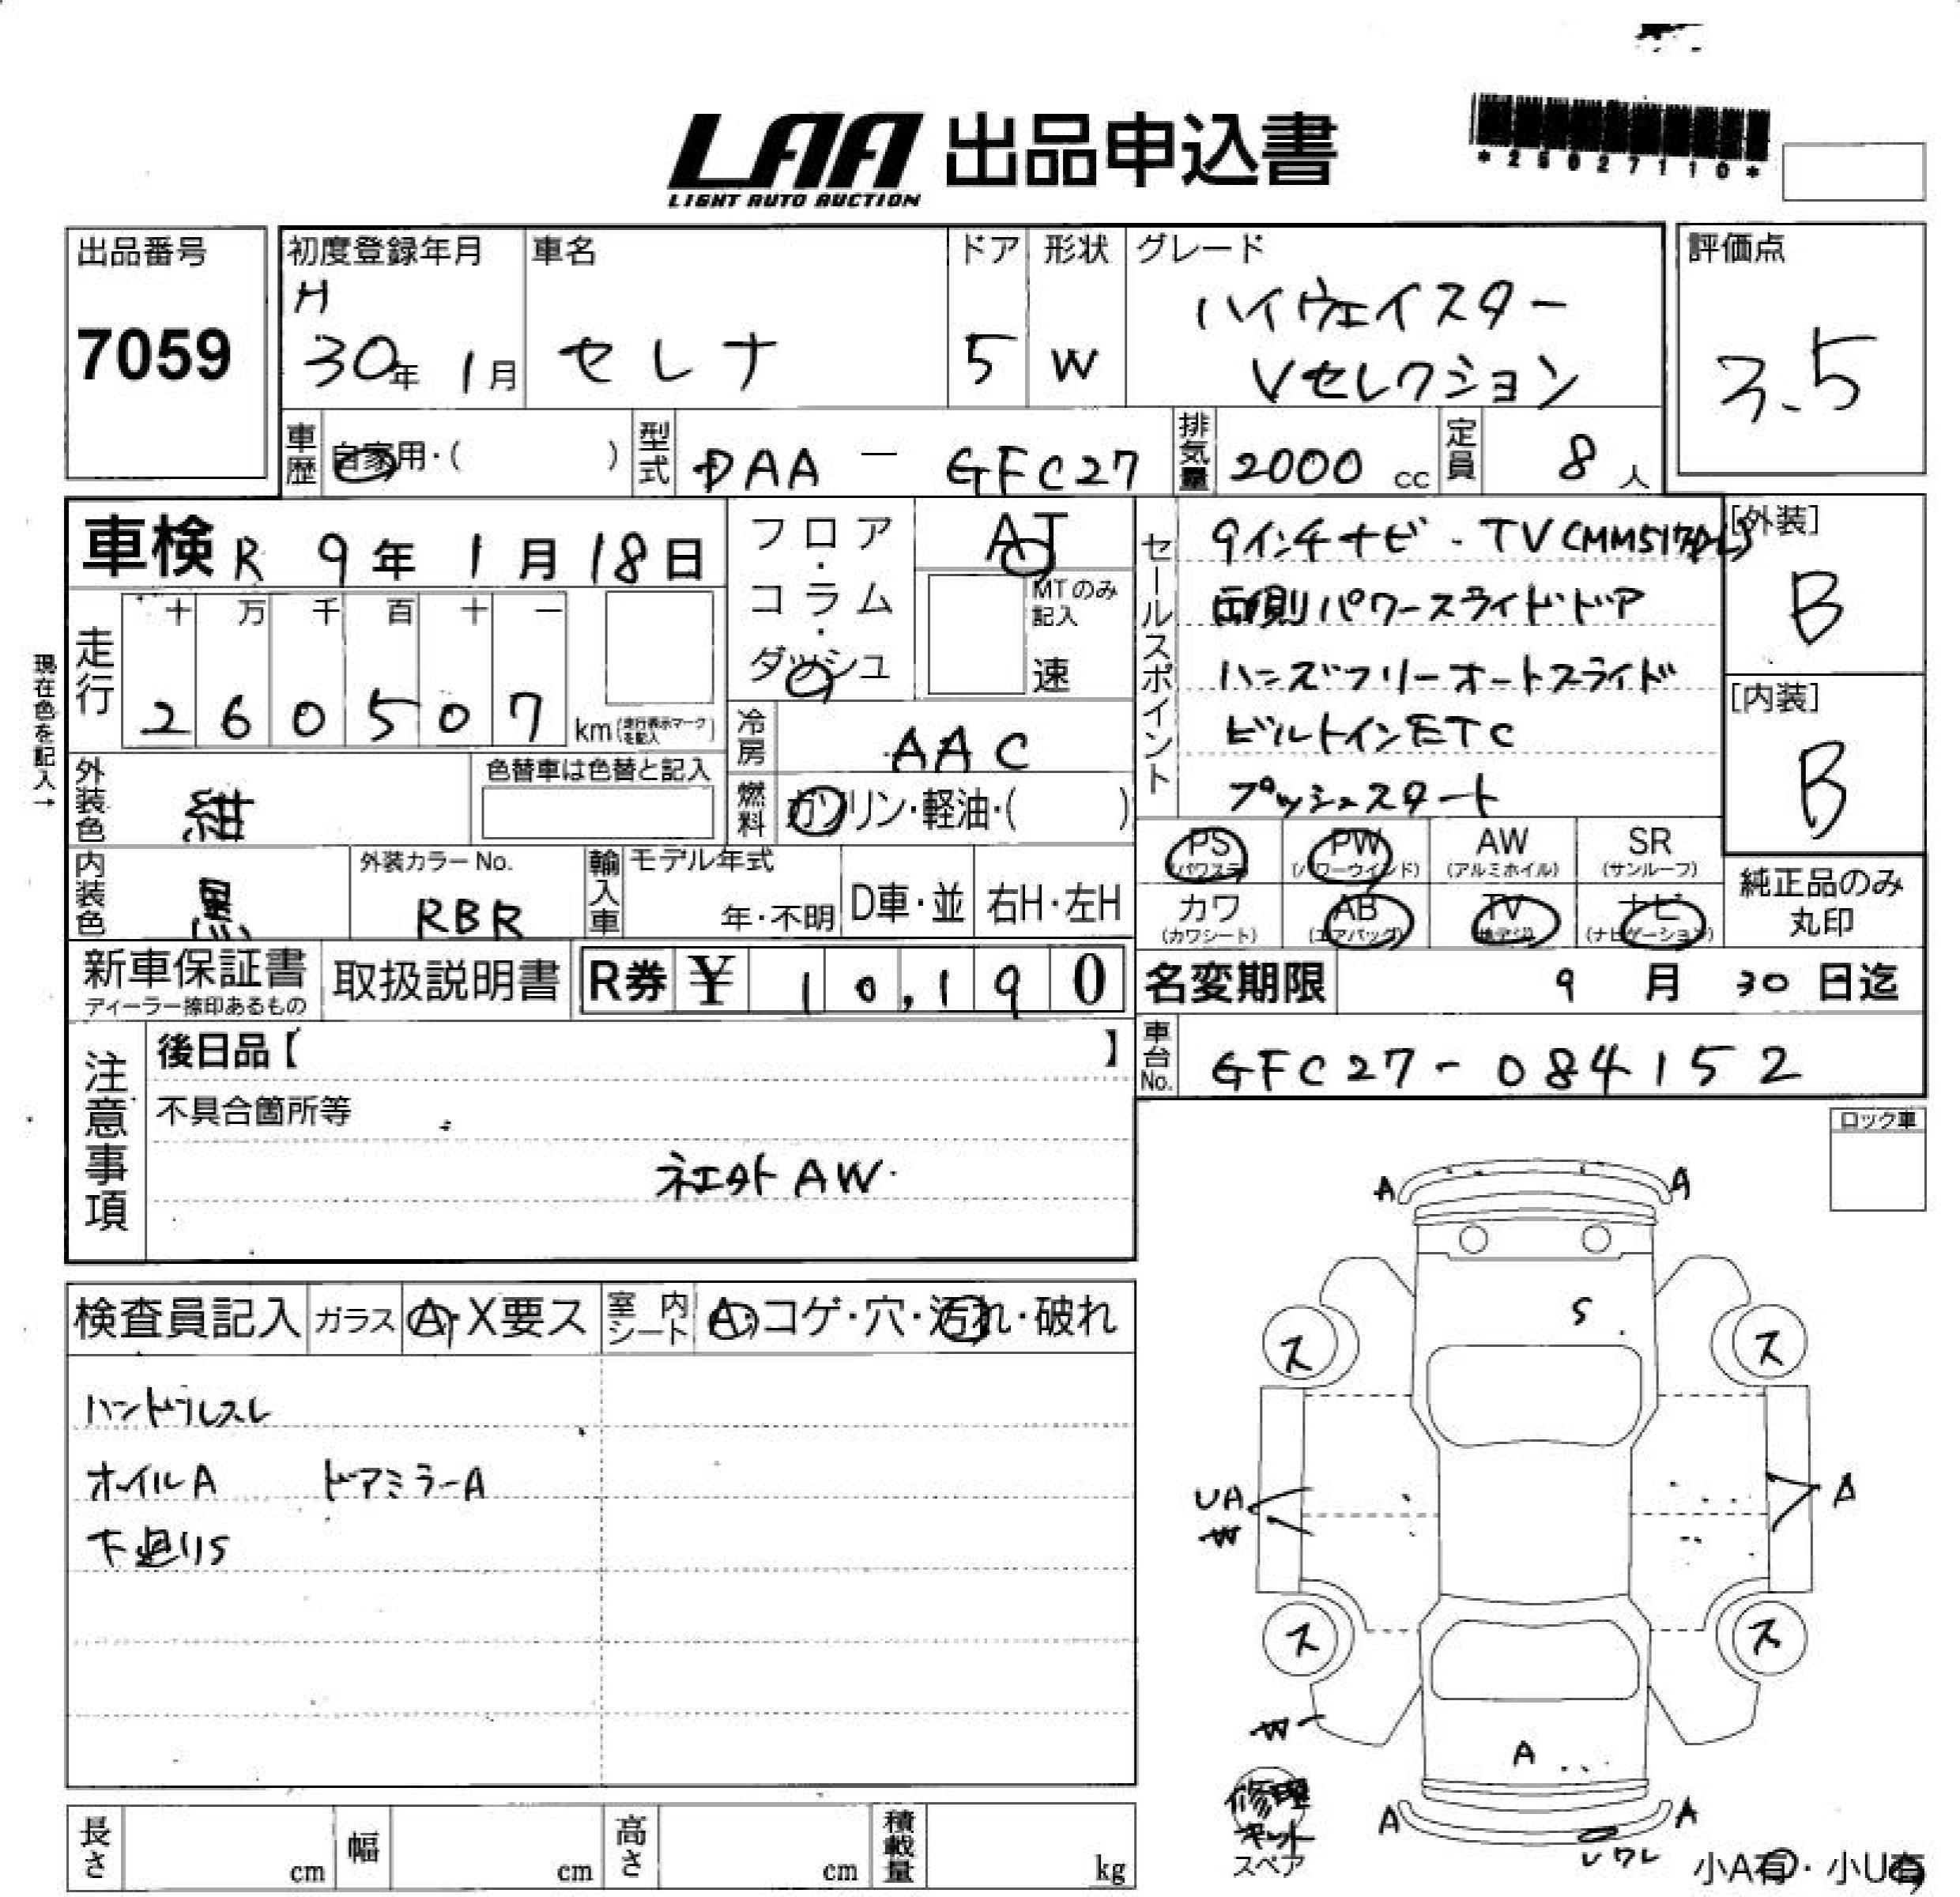 LAA 出品申込書
LIGHT AUTO AUCTION
*25027110*
出品番号
7059
初度登録年月
H
30年 1月
車名
セレナ
ドア
5
形状
W
グレード
ハイウェイスター
Vセレクション
評価点
3.5
車歴
自家用・( )
型式
DAA - GFC27
排気量
2000 cc
定員
8 人
車検 R 9年 1月 18日
フロア・コラム・ダッシュ
AT
MTのみ記入
速
走行
十 万 千 百 十 一
2 6 0 5 0 7 km(走行表示マークを記入)
現在色を記入→
冷房
AAC
燃料
ガソリン・軽油・( )
外装色
紺
色替車は色替と記入
内装色
黒
外装カラーNo.
RBR
輸入車
モデル年式
年・不明
D車・並
右H・左H
セールスポイント
9インチナビ・TV(MM517D-L)
両側パワースライドドア
ハンズフリーオートスライド
ビルトインETC
プッシュスタート
[外装]
B
[内装]
B
PS (パワステ)
PW (パワーウインド)
AW (アルミホイル)
SR (サンルーフ)
カワ (カワシート)
AB (エアバッグ)
TV (地デジ)
ナビ (ナビゲーション)
純正品のみ
丸印
新車保証書
ディーラー捺印あるもの
取扱説明書
R券 ¥ 10,190
名変期限 9月 30日迄
車台No.
GFC27-084152
注意事項
後日品【 】
不具合箇所等
社外AW
ロック車
検査員記入
ガラス
A・X要ス
室内シート
A・コゲ・穴・汚れ・破れ
ハンドルスレ
オイルA ドアミラーA
下廻りS
A A
S
ス ス
UA
W
A
ス ス
W
A
A A
ワレ
修理
キット
スペア
小A有・小U有
長さ cm
幅 cm
高さ cm
積載量 kg